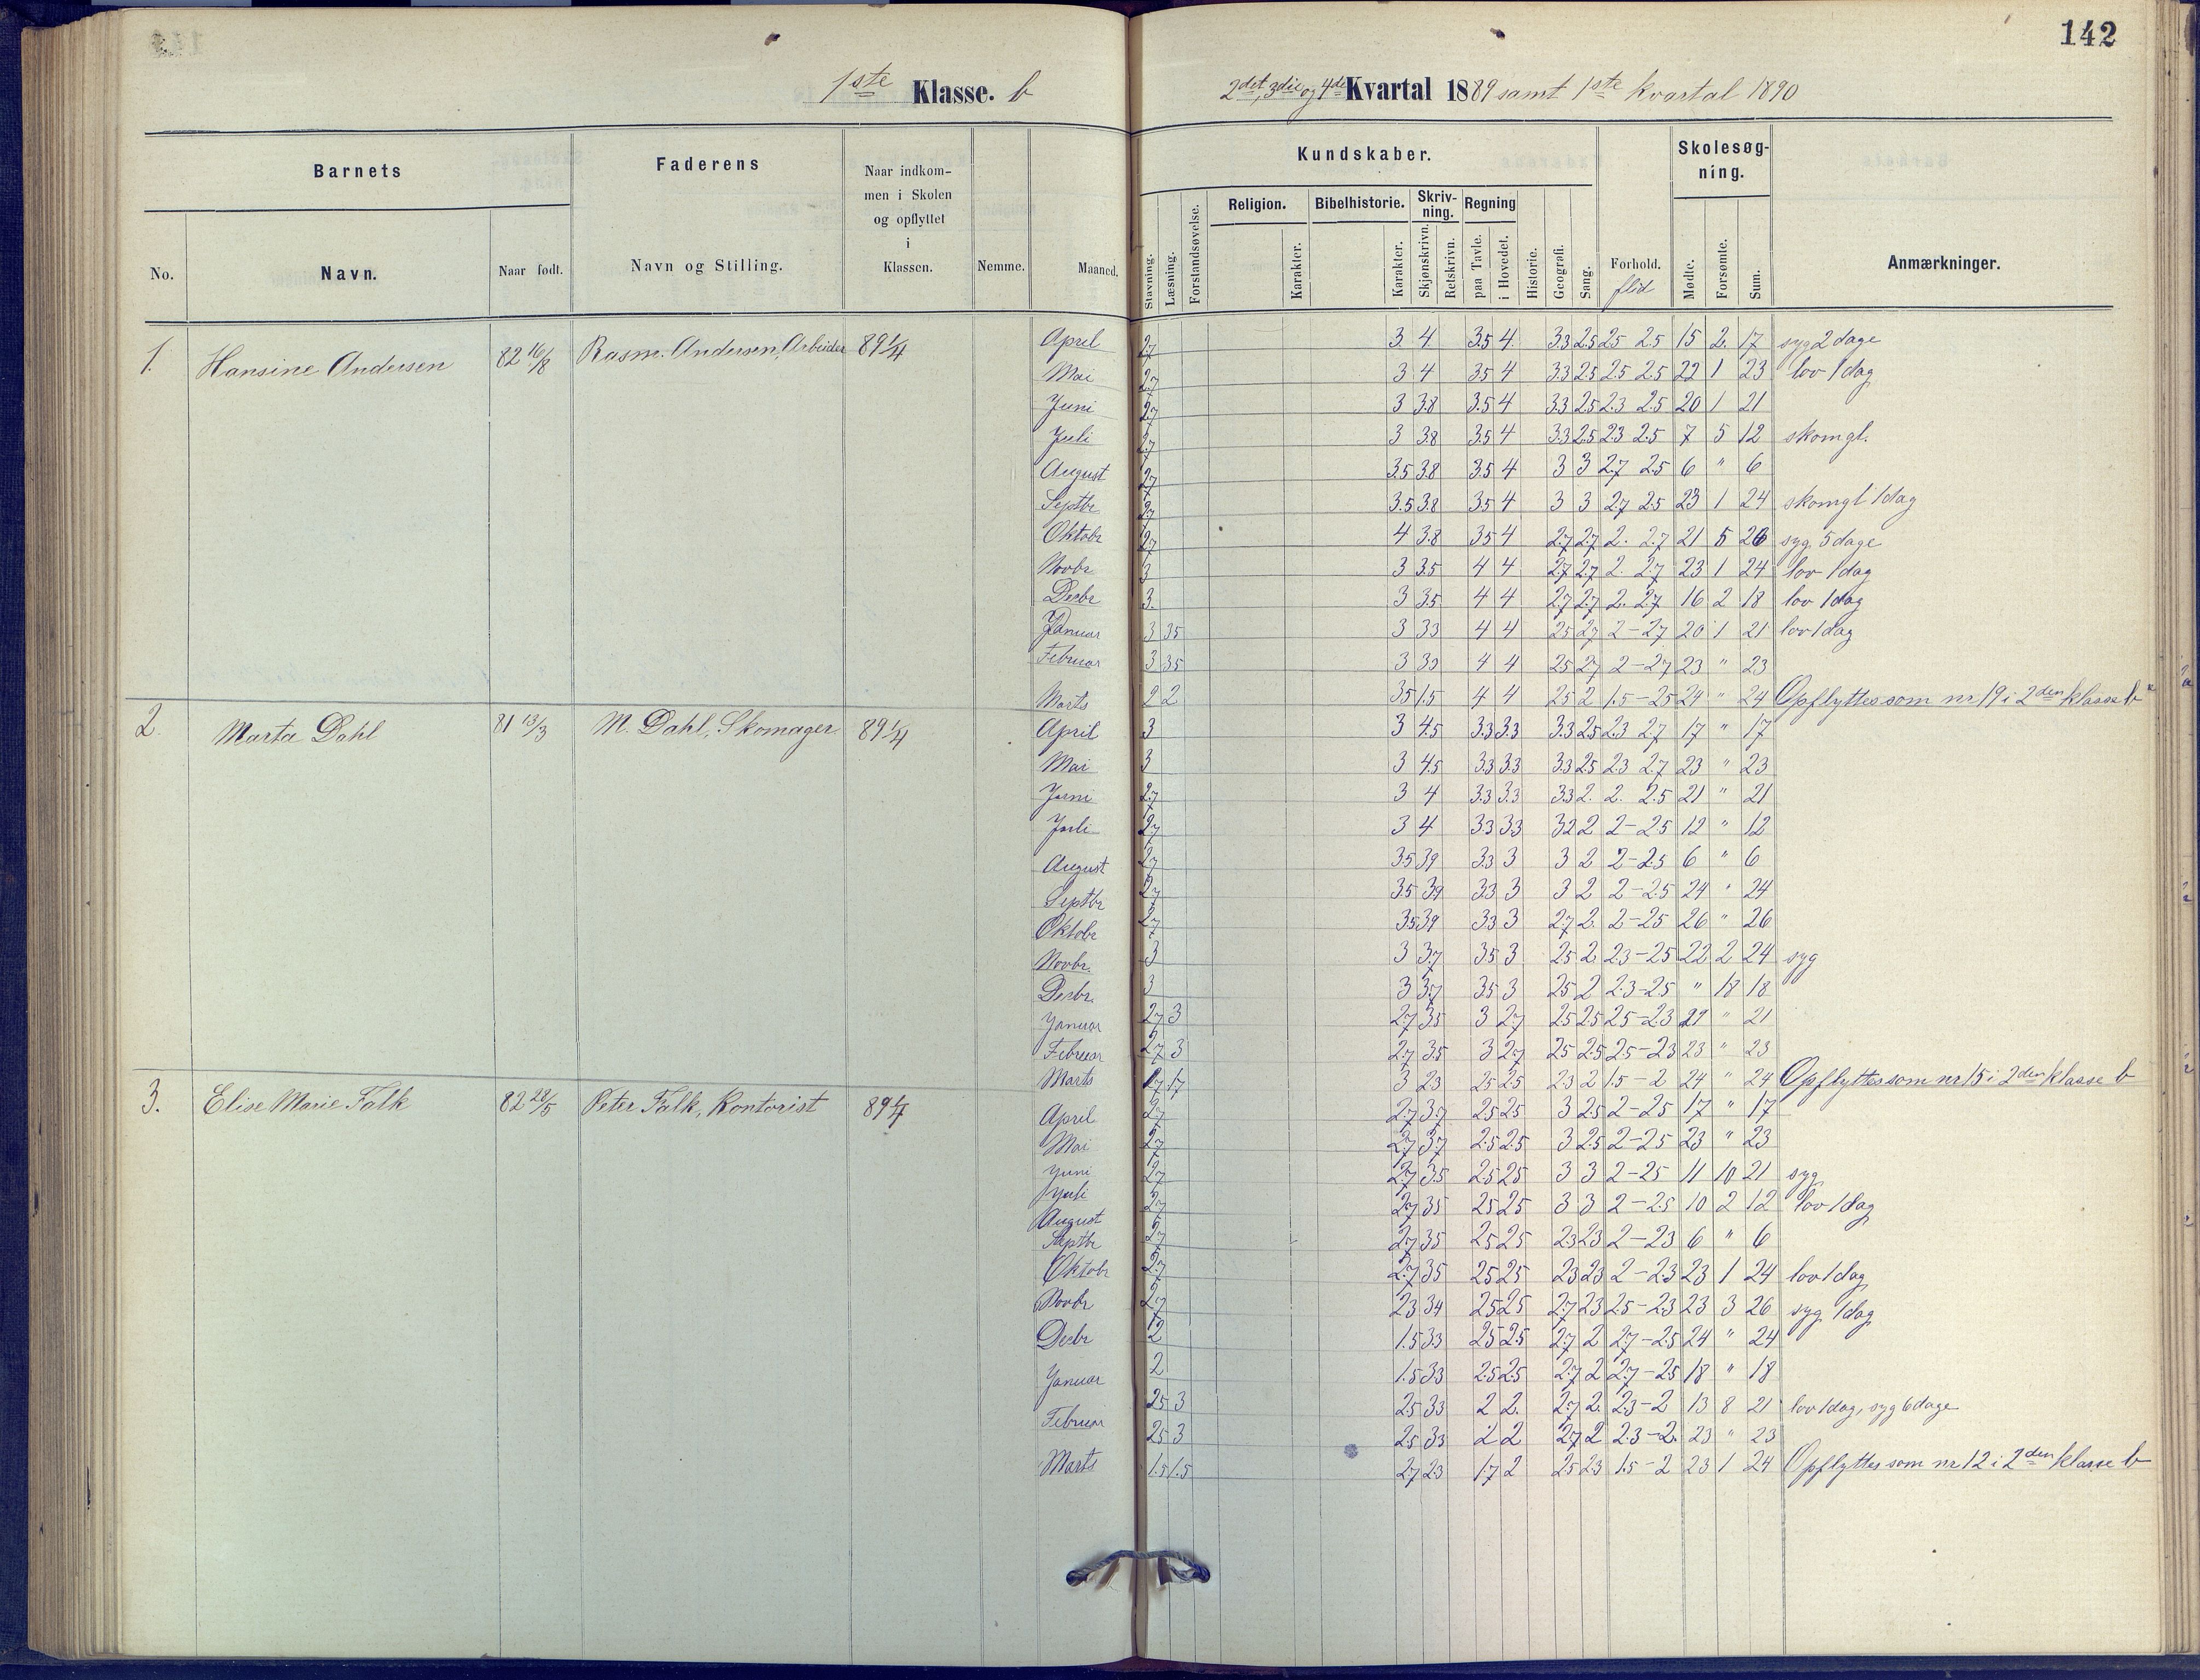 142
1ste Klasse. b
2det, 3die og 4de Kvartal 1889 samt 1ste kvartal 1890
Barnets
Faderens
Naar indkom-
men i Skolen
og opflyttet
i
Klassen.
No.
Navn.
Naar født.
Navn og Stilling.
Nemme.
Maaned.
Kundskaber.
Skolesøg-
ning.
Religion.
Bibelhistorie.
Skriv-
ning.
Regning
Stavning.
Læsning.
Forstandsøvelse.
Karakter.
Karakter.
Skjønskrivn.
Retskrivn.
paa Tavle.
i Hovedet.
Historie.
Geografi.
Sang.
Forhold.
flid
Mødte.
Forsømte.
Sum.
Anmærkninger.
1. Hansine Andersen 82 16/8 Rasm. Andersen, Arbeider 89 1/4
April 2.7 3. 4. 3.5 4. 3.3 2.5 2.5 2.5 15 2. 17 syg 2 dage
Mai 2.7 3 4 3.5 4 3.3 2.5 2.5 2.5 22 1 23 lov 1 dag
Juni 2.7 3 3.8 3.5 4 3.3 2.5 2.3 2.5 20 1 21
Juli 2.7 3 3.8 3.5 4 3.3 2.5 2.3 2.5 7 5 12 skomgl.
August 2.7 3.5 3.8 3.5 4 3 3 2.7 2.5 6 " 6
Septbr 2.7 3.5 3.8 3.5 4 3 3 2.7 2.5 23 1 24 skomgl 1 dag
Oktobr 2.7 4 3.8 3.5 4 2.7 2.7 2. 2.7 21 5 26 syg. 5 dage
Novbr 3 3 3.5 4 4 2.7 2.7 2. 2.7 23 1 24 lov 1 dag
Desbr 3. 3 3.5 4 4 2.7 2.7 2. 2.7 16 2 18 lov 1 dag
Januar 3 3.5 3 3.3 4 4 2.5 2.7 2-2.7 20 1 21 lov 1 dag
Februar 3 3.5 3 3.3 4 4 2.5 2.7 2-2.7 23 " 23
Marts 2 2 3.5 1.5 4 4 2.5 2 1.5-2.5 24 " 24 Opflyttes som nr 19 i 2den klasse b
2. Marta Dahl 81 13/3 M. Dahl, Skomager 89 1/4
April 3 3 4.5 3.3 3.3 3.3 2.5 2.3 2.7 17 " 17
Mai 3 3 4.5 3.3 3.3 3.3 2.5 2.3 2.7 23 " 23
Juni 2.7 3 4 3.3 3.3 3.3 2. 2. 2.5 21 " 21
Juli 2.7 3 4 3.3 3.3 3.2 2 2-2.5 12 " 12
August 2.7 3.5 3.9 3.3 3 3 2 2-2.5 6 " 6
Septbr 2.7 3.5 3.9 3.3 3 3 2 2-2.5 24 " 24
Oktobr 2.7 3.5 3.9 3.3 3 2.7 2. 2-2.5 26 " 26
Novbr. 3 3 3.7 3.5 3 2.5 2 2.3-2.5 22 2 24 syg
Desbr. 3 3 3.7 3.5 3 2.5 2 2.3-2.5 " 18 18
Januar 2.7 3 2.7 3.5 3 2.7 2.5 2.5 2.5-2.3 21 " 21
Februar 2.7 3 2.7 3.5 3 2.7 2.5 2.5 2.5-2.3 23 " 23
Marts 1.7 1.7 3 2.3 2.5 2.5 2.3 2 1.5-2 24 " 24 Opflyttes som nr 15 i 2den klasse b
3. Elise Marie Falk 82 28/5 Peter Falk, Kontorist 89 1/4
April 2.7 2.7 3.7 2.5 2.5 3 2.5 2-2.5 17 " 17
Mai 2.7 2.7 3.7 2.5 2.5 3 2.5 2-2.5 23 " 23
Juni 2.7 2.7 3.5 2.5 2.5 3 3 2-2.5 11 10 21 syg
Juli 2.7 2.7 3.5 2.5 2.5 3 3 2-2.5 10 2 12 lov 1 dag
August 2.7 2.7 3.5 2.5 2.5 2.3 2.3 2-2.3 6 " 6
Septbr 2.7 2.7 3.5 2.5 2.5 2.3 2.3 2-2.3 23 1 24 lov 1 dag
Oktobr 2.7 2.3 3.4 2.5 2.5 2.7 2.3 2.5-2.3 23 3 26 syg 1 dag
Novbr 2 1.5 3.3 2.5 2.5 2.7 2 2.7-2.5 24 " 24
Desbr 2 1.5 3.3 2.5 2.5 2.7 2 2.7-2.5 18 " 18
Januar 2.5 3 2.5 3.3 2 2. 2.7 2. 2.3-2 13 8 21 lov 1 dag, syg 6 dage
Februar 2.5 3 2.5 3.3 2 2 2.7 2 2.3-2. 23 " 23
Marts 1.5 1.5 2.7 2.3 1.7 2 2.5 2.3 1.5-2 23 1 24 Opflyttes som nr 12 i 2den klasse b